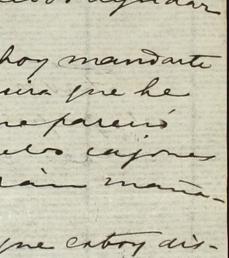 ayudar
hoy mandarte
que he
me pareció
cajones
rán maña-
que estoy dis-